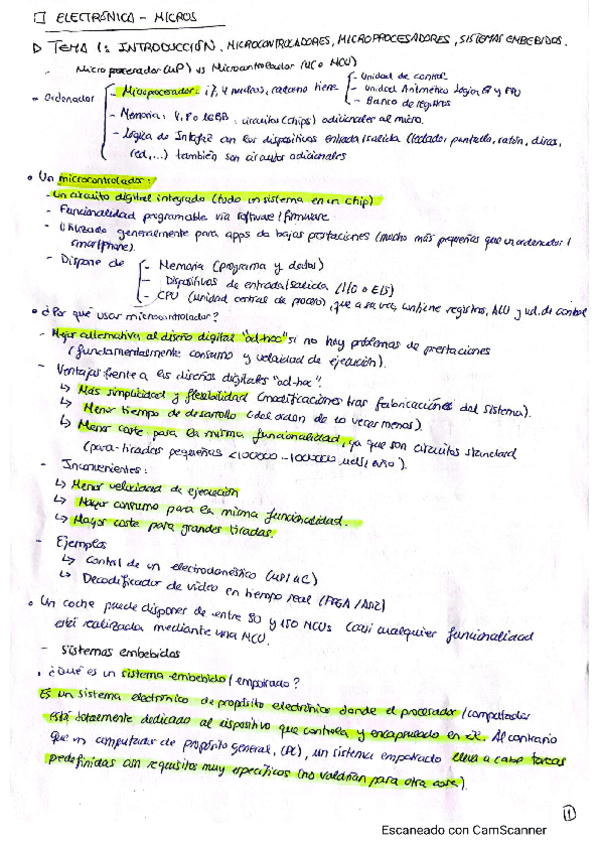 □ ELECTRÓNICA - MICROS
▷ TEMA 1: INTRODUCCIÓN, MICROCONTROLADORES, MICROPROCESADORES, SISTEMAS EMBEBIDOS.
- Microprocesador (μP) vs Microcontrolador (μC o MCU)
- Ordenador
- Microprocesador: i7, 4 nucleos, cada uno tiene
- Unidad de control
- Unidad Aritmético Lógica, y FPU
- Banco de registros
- Memoria: 4, 8 o 16GB: circuitos (chips) adicionales al micro.
- Lógica de Interfaz con los dispositivos entrada/salida (teclado, pantalla, ratón, discos,
red,...) también son circuitos adicionales
• Un microcontrolador:
- Un circuito digital integrado (todo un sistema en un chip)
- Funcionalidad programable vía software/firmware.
- Utilizado generalmente para apps de bajas prestaciones (mucho más pequeñas que un ordenador/
smartphone).
- Dispone de
- Memoria (programa y datos)
- Dispositivos de entrada/salida (I/O o E/S)
- CPU (unidad central de proceso), que a su vez, contiene registros, ALU y ud. de control
• ¿Por qué usar microcontrolador?
- Mejor alternativa al diseño digital "ad-hoc" si no hay problemas de prestaciones
(fundamentalmente consumo y velocidad de ejecución).
- Ventajas frente a los diseños digitales "ad-hoc":
↳ Más simplicidad y flexibilidad (modificaciones tras fabricaciones del sistema).
↳ Menor tiempo de desarrollo (del orden de 10 veces menos).
↳ Menor coste para la misma funcionalidad, ya que son circuitos standard
(para tiradas pequeñas <10000 - 100000 uds/año).
- Inconvenientes:
↳ Menor velocidad de ejecución
↳ Mayor consumo para la misma funcionalidad.
↳ Mayor coste para grandes tiradas.
- Ejemplos
↳ Control de un electrodoméstico (μP/μC)
↳ Decodificador de vídeo en tiempo real (FPGA/
• Un coche puede disponer de entre 50 y 150 MCUs (casi cualquier funcionalidad
está realizada mediante una MCU.
- Sistemas embebidos
• ¿Qué es un sistema embebido/empotrado?
Es un sistema electrónico de propósito electrónico donde el procesador/computador
está totalmente dedicado al dispositivo que controla y encapsulado en él. Al contrario
que un computador de propósito general, (PC), un sistema empotrado lleva a cabo tareas
predefinidas con requisitos muy específicos (no valdrían para otra cosa).
1
Escaneado con CamScanner